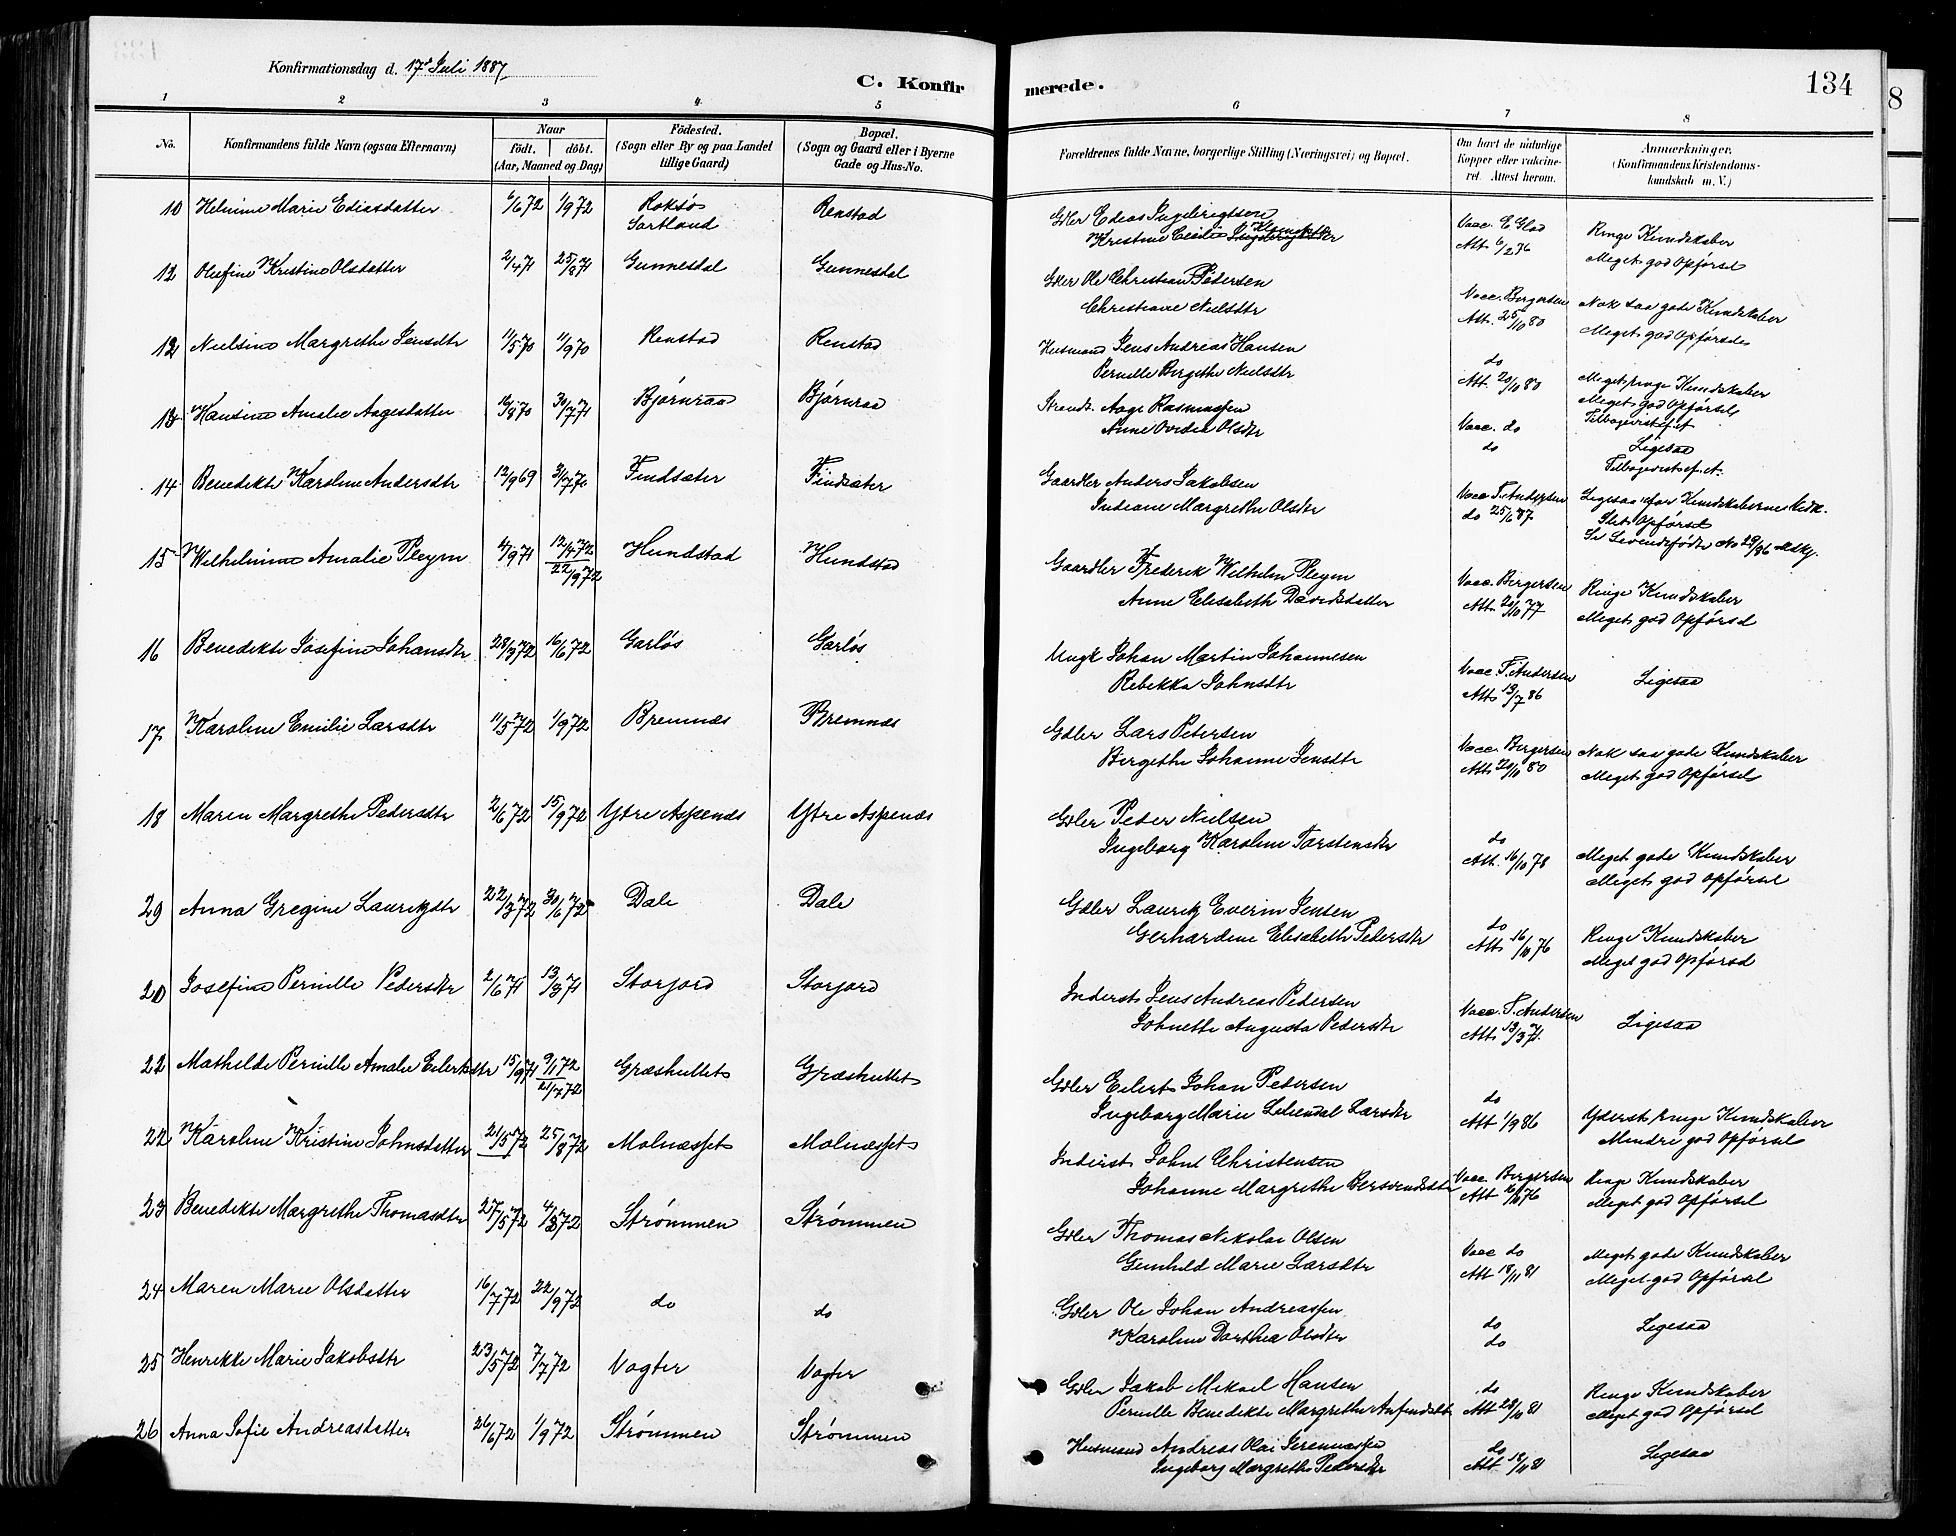 Konfirmationsdag d. 17de Juli 1887.
C. Konfirmerede.
134
8
1 2 3 4 5 6 7 8
No.
Konfirmandens fulde Navn (ogsaa Efternavn)
Naar
født. døbt.
(Aar, Maaned og Dag)
Födested.
(Sogn eller By og paa Landet tillige Gaard)
Bopæl.
(Sogn og Gaard eller i Byerne Gade og Hus-No.
Forældrenes fulde Navne, borgerlige Stilling (Næringsvei) og Bopæl.
Om havt de naturlige Kopper eller vakcineret. Attest herom.
Anmærkninger.
(Konfirmandens Kristendomskundskab m. V.)
10 Helmine Marie Ediasdatter 6/6 72 1/9 72 Roksøs Sortland Renstad
Gdler Edeas Ingebrigtsen
Kristine Cecilie
Vacc. E. Glad
Att 6/2 76
Ringe Kundskaber
Meget god Opførsel
12 Olufine Kristine Olsdatter 2/4 71 25/8 71 Gunnesdal Gunnesdal
Gdler Ole Christian Pedersen
Christiane Nielsdtr
Vacc. Bergersen
Att. 25/10 80
Nok saa gode Kundskaber
Meget god Opførsel
12 Nielsine Margrethe Jensdtr 11/5 70 11/9 70 Renstad Renstad
Husmand Jens Andreas Hansen
Pernille Bergethe Nielsdtr
do
Att. 20/10 80
Meget ringe Kundskaber
Meget god Opførsel
Tilbagevist f. A
13 Hansine Amalie Aagesdatter 16/8 70 30/7 71 Bjørnraa Bjørnraa
Strands. Aage Rasmussen
Anne Ovedia Olsdtr
Vacc. do
do
Ligesaa
Tilbagevist f. A.
14 Benedikte Karoline Andersdtr 12/9 69 31/7 70 Findsæter Findsæter
Gaardler Anders Jakobsen
Indiane Margrethe Olsdtr
Vacc T. Andersen
do 25/6 87.
Ligesaa for Kundskaberne Vedk.
Slet Opførsel
Se Levendefødte No 29/86 Mdkj.
15 Wilhelmine Amalie Pleym 4/9 71 12/4 72 22/9 72 Hundstad Hundstad
Gaardler Frederik Wilhelm Pleym
Anne Elisabeth Davidsdatter
Vacc. Bergersen
Att 20/10 77
Ringe Kundskaber
Meget god Opførsel
16 Benedikte Josefine Johansdtr 28/3 72 16/6 72 Garløs Garløs
Ungk Johan Martin Johannesen
Rebekka Johnsdtr
Vacc. T. Andersen
Att 13/7 86
Ligesaa
17 Karoline Emilie Larsdtr 11/5 72 1/9 72 Bremnæs Bremnæs
Gdler Lars Petersen
Bergethe Johanne Jensdtr
Vacc. Bergersen
Att 20/10 80
Nok saa gode Kundskaber
Meget god Opførsel
18 Maren Margrethe Pedersdtr 2/6 72 15/9 72 Ytre Aspenæs Ytre Aspenæs
Gdler Peder Nielsen
Ingeborg Karoline Torstensdtr
do
Att. 16/10 78
Meget gode Kundskaber
Meget god Opførsel
29 Anna Gregine Lauritzdtr 22/3 72 30/6 72 Dale Dale
Gdler Lauritz Everin Jensen
Gerhardine Elisabeth Pedersdtr
do
Att 16/10 76
Ringe Kundskaber
Meget god Opførsel
20 Josefine Pernille Pedersdtr 2/6 71 13/3 71 Storjord Storjord
Inderst Jens Andreas Pedersen
Johnette Augusta Pedersdtr
Vacc. T. Andersen
Att 13/3 71.
Ligesaa
22 Mathilde Pernille Amalie Eilertsdtr 15/9 71 9/1 72 21/7 72 Græshultet Græshultet
Gdler Eilert Johan Pedersen
Ingeborg Marie Larsdtr
do
Att 1/9 86
Yderst ringe Kundskaber
Mindre god Opførsel
22 Karoline Kristine Johnsdatter 21/5 72 25/8 72 Molnæsset Molnæsset
Inderst John Christensen
Johanne Margrethe Bersvendsdtr
Vacc. Bergersen
Att 16/10 76
Ringe Kundskaber
Meget god Opførsel
23 Benedikte Margrethe Thomasdtr 27/5 72 4/8 72 Strømmen Strømmen
Gdler Thomas Nikolai Olsen
Gunhild Marie Larsdtr
Vacc do
Att 18/11 81
Meget gode Kundskaber
Meget god Opførsel
24 Maren Marie Olsdatter 16/7 72 22/9 72 do do
Gdler Ole Johan Andreassen
Karoline Dorthea Olsdtr
do
do
Ligesaa
25 Henrikke Marie Jakobsdtr 23/5 72 7/7 72 Vogter Vogter
Gdler Jakob Mikael Hansen
Pernille Benedikte Margrethe Anfindsdtr
do
Att 28/11 81
Ringe Kundskaber
Meget god Opførsel
26 Anna Sofie Andreasdatter 26/6 72 1/9 72 Strømmen Strømmen
Husmand Andreas Olai Serennæssen
Ingeborg Margrethe Pedersdtr
do
Att 18/11 81
Ligesaa